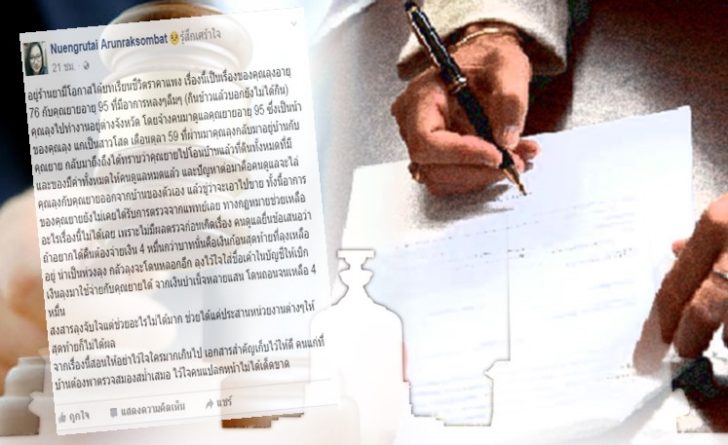 Nuengrutai Arunraksombat 🥺 รู้สึกเศร้าใจ
21 ชม. ·
อยู่ร้านยามีโอกาสได้บทเรียนชีวิตราคาแพง เรื่องนี้เป็นเรื่องของคุณลุงอายุ
76 กับคุณยายอายุ 95 ที่มีอาการหลงๆลืมๆ (กินข้าวแล้วบอกยังไม่ได้กิน)
คุณลุงไปทำงานอยู่ต่างจังหวัด โดยจ้างคนมาดูแลคุณยายอายุ 95 ซึ่งเป็นน้า
ของคุณลุง แกเป็นสาวโสด เดือนตุลา 59 ที่ผ่านมาคุณลุงกลับมาอยู่บ้านกับ
คุณยาย กลับมาถึงถึงได้ทราบว่าคุณยายไปโอนบ้านแล้วที่ดินทั้งหมดที่มี
และของมีค่าทั้งหมดให้คนดูแลหมดแล้ว และปัญหาต่อมาคือคนดูแลจะไล่
คุณลุงกับคุณยายออกจากบ้านของตัวเอง แล้วขู่ว่าจะเอาไปขาย ทั้งนี้อาการ
ของคุณยายยังไม่เคยได้รับการตรวจจากแพทย์เลย ทางกฎหมายช่วยเหลือ
อะไรเรื่องนี้ไม่ได้เลย เพราะไม่มีผลตรวจก่อนเกิดเรื่อง คนดูแลยื่นข้อเสนอว่า
ถ้าอยากได้คืนต้องจ่ายเงิน 4 หมื่นกว่าบาทนั่นคือเงินก้อนสุดท้ายที่ลุงเหลือ
อยู่ น่าเป็นห่วงลุง กลัวลุงจะโดนหลอกอีก ลุงไว้ใจใส่ชื่อเค้าในบัญชีให้เบิก
เงินลุงมาใช้จ่ายกับคุณยายได้ จากเงินบำเน็จหลายแสน โดนถอนจนเหลือ 4
หมื่น
สงสารลุงจับใจแต่ช่วยอะไรไม่ได้มาก ช่วยได้แค่ประสานหน่วยงานต่างๆให้
สุดท้ายก็ไม่ได้ผล
จากเรื่องนี้สอนให้อย่าไว้ใจใครมากเกินไป เอกสารสำคัญเก็บไว้ให้ดี คนแก่ที่
บ้านต้องพาตรวจสมองสม่ำเสมอ ไว้ใจคนแปลกหน้าไม่ได้เด็ดขาด
ถูกใจ แสดงความคิดเห็น แชร์